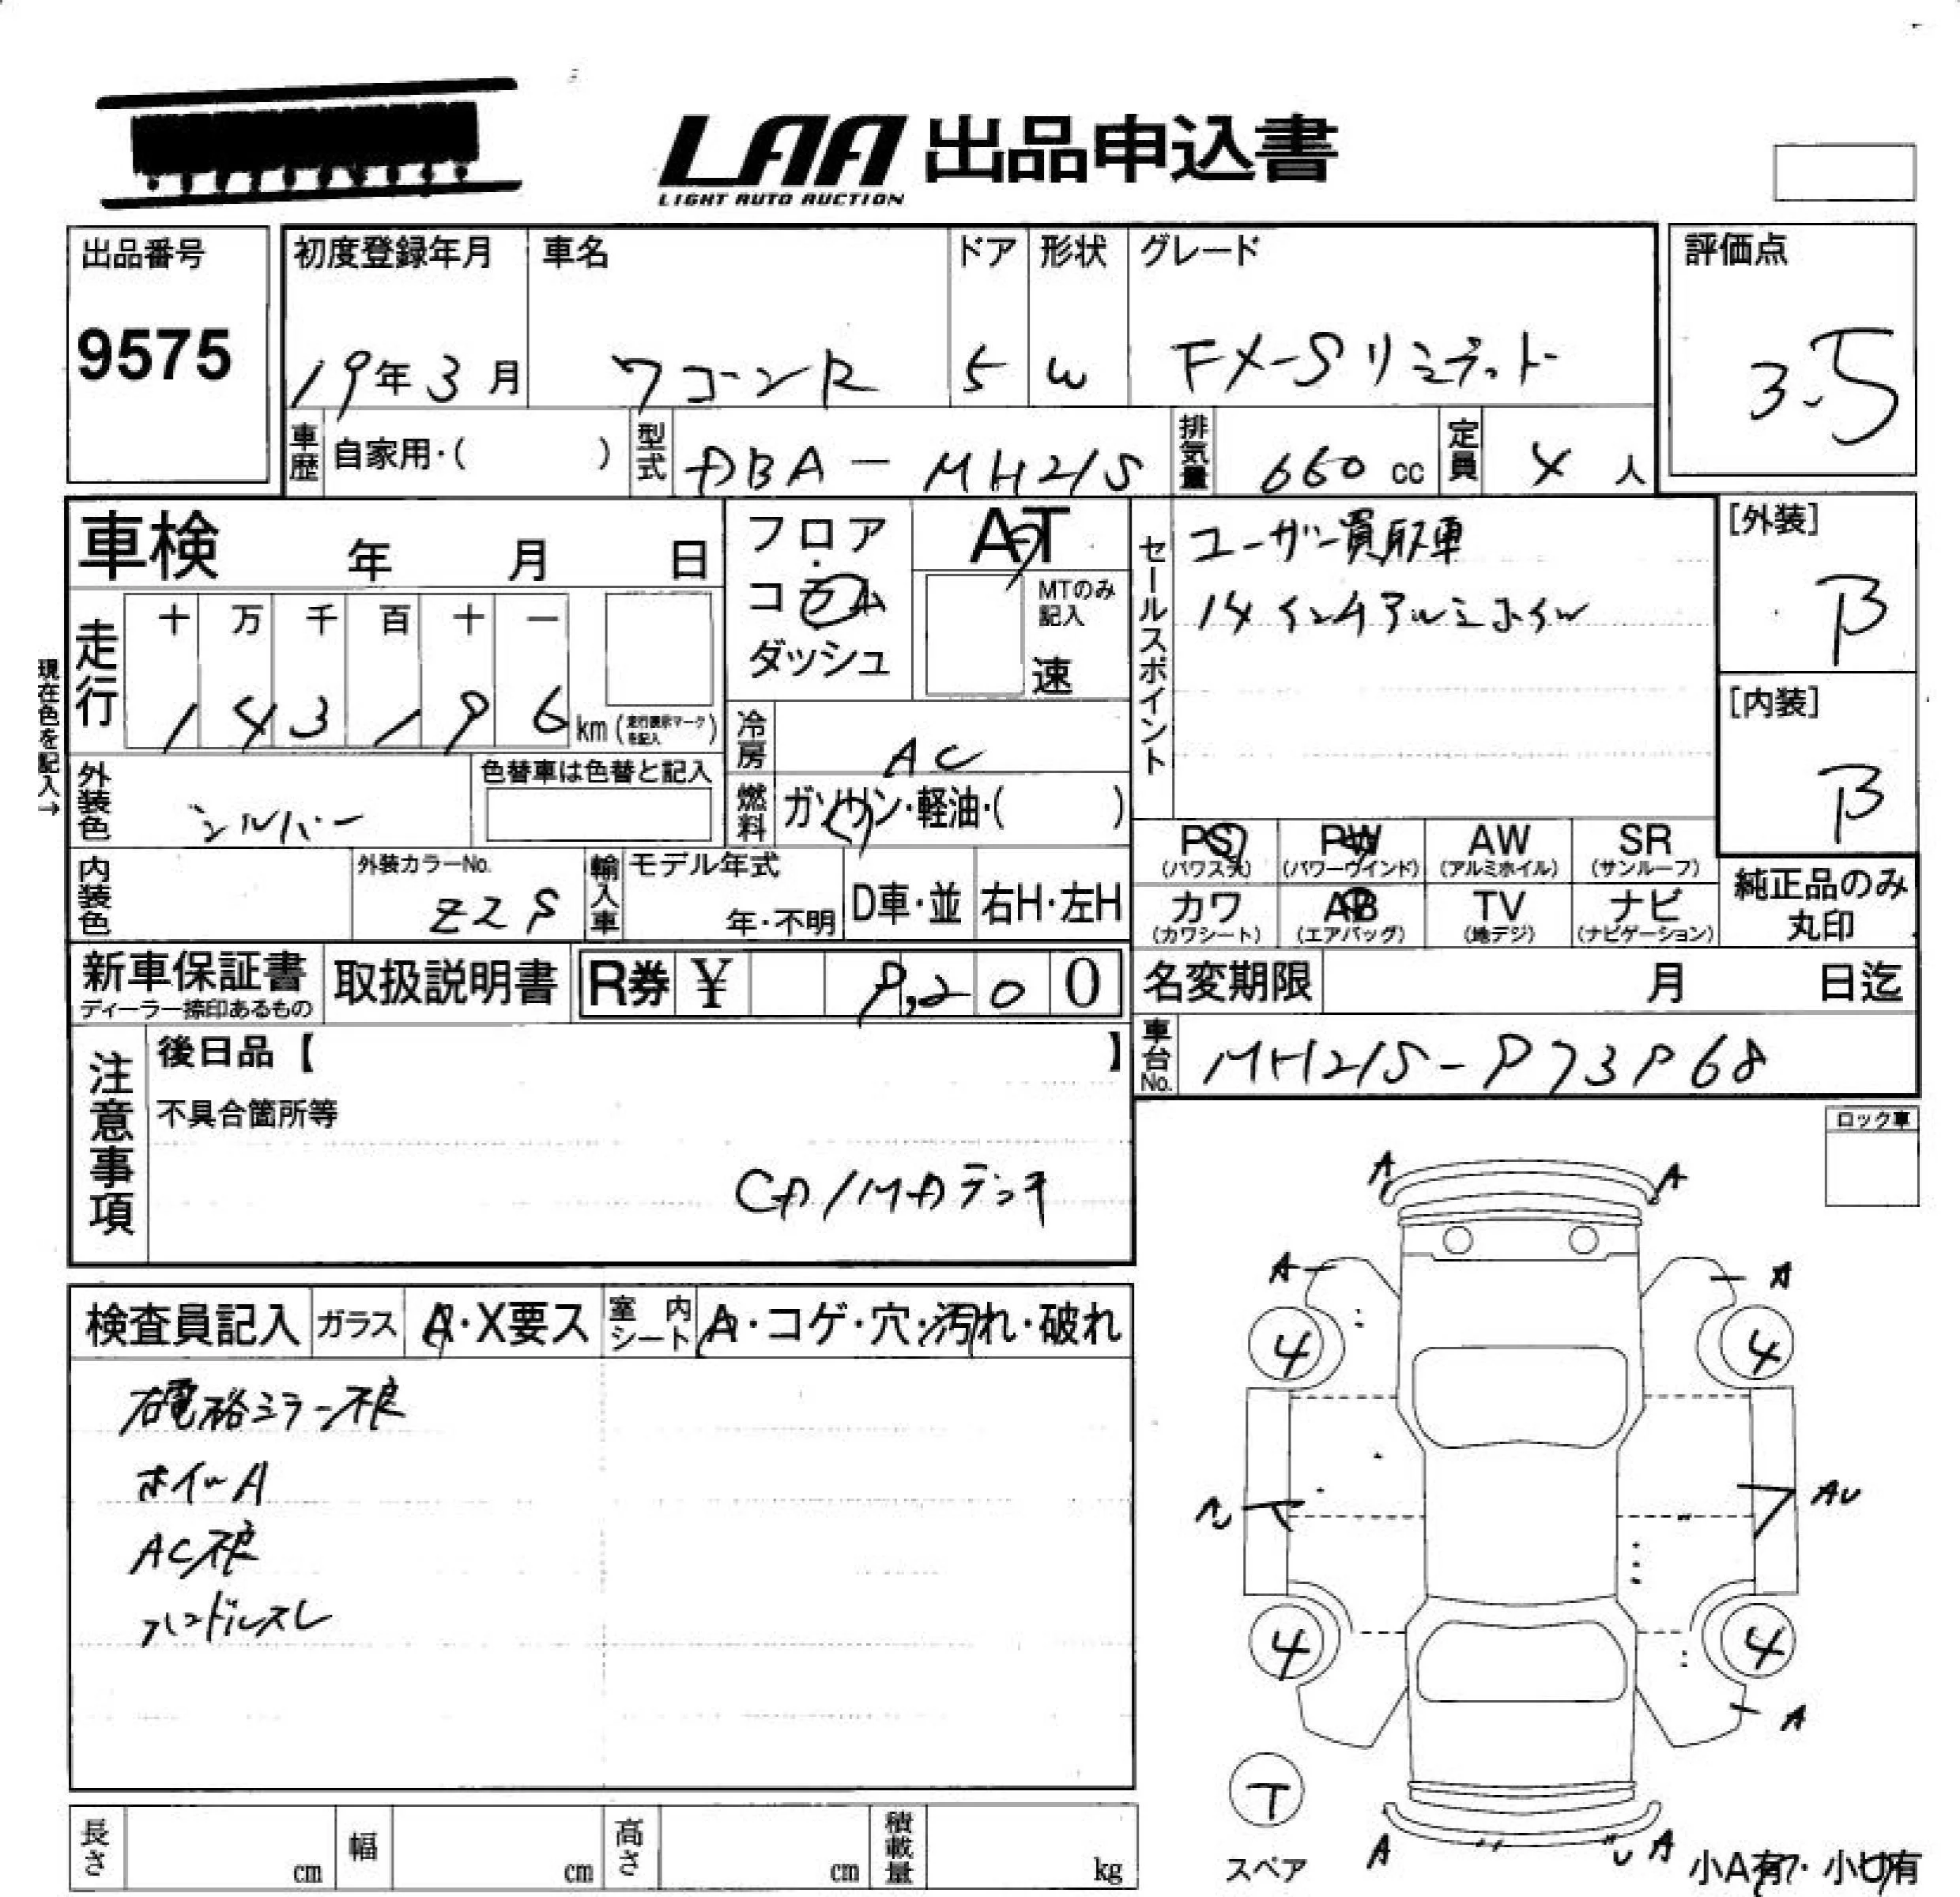 LAA 出品申込書
LIGHT AUTO AUCTION
出品番号
9575
初度登録年月
19年3月
車名
ワゴンR
ドア
5
形状
W
グレード
FX-Sリミテット
評価点
3.5
車歴
自家用・( )
型式
DBA-MH21S
排気量
660 cc
定員
4 人
車検 年 月 日
フロア・コラム
ダッシュ
AT
MTのみ記入
速
セールスポイント
ユーザー買取車
14インチアルミホイル
[外装]
B
[内装]
B
現在色を記入→
走行
十 万 千 百 十 一
1 4 3 1 9 6 km (走行表示マークを記入)
冷房
AC
外装色
シルバー
色替車は色替と記入
燃料
ガソリン・軽油・( )
内装色
外装カラーNo.
Z2S
輸入車
モデル年式
年・不明
D車・並
右H・左H
PS (パワステ)
PW (パワーウインド)
AW (アルミホイル)
SR (サンルーフ)
カワ (カワシート)
AB (エアバッグ)
TV (地デジ)
ナビ (ナビゲーション)
純正品のみ
丸印
新車保証書
ディーラー捺印あるもの
取扱説明書
R券 ¥ 9,200
名変期限 月 日迄
車台No.
MH21S-973968
注意事項
後日品【 】
不具合箇所等
CD/MDデッキ
ロック車
検査員記入
ガラス
A・X要ス
室内シート
A・コゲ・穴・汚れ・破れ
右電格ミラー不良
ホイルA
AC不良
ハンドルスレ
A A
A A
4 4
AU
4 4
A
T
スペア
A
U A
小A有・小U有
長さ cm
幅 cm
高さ cm
積載量 kg